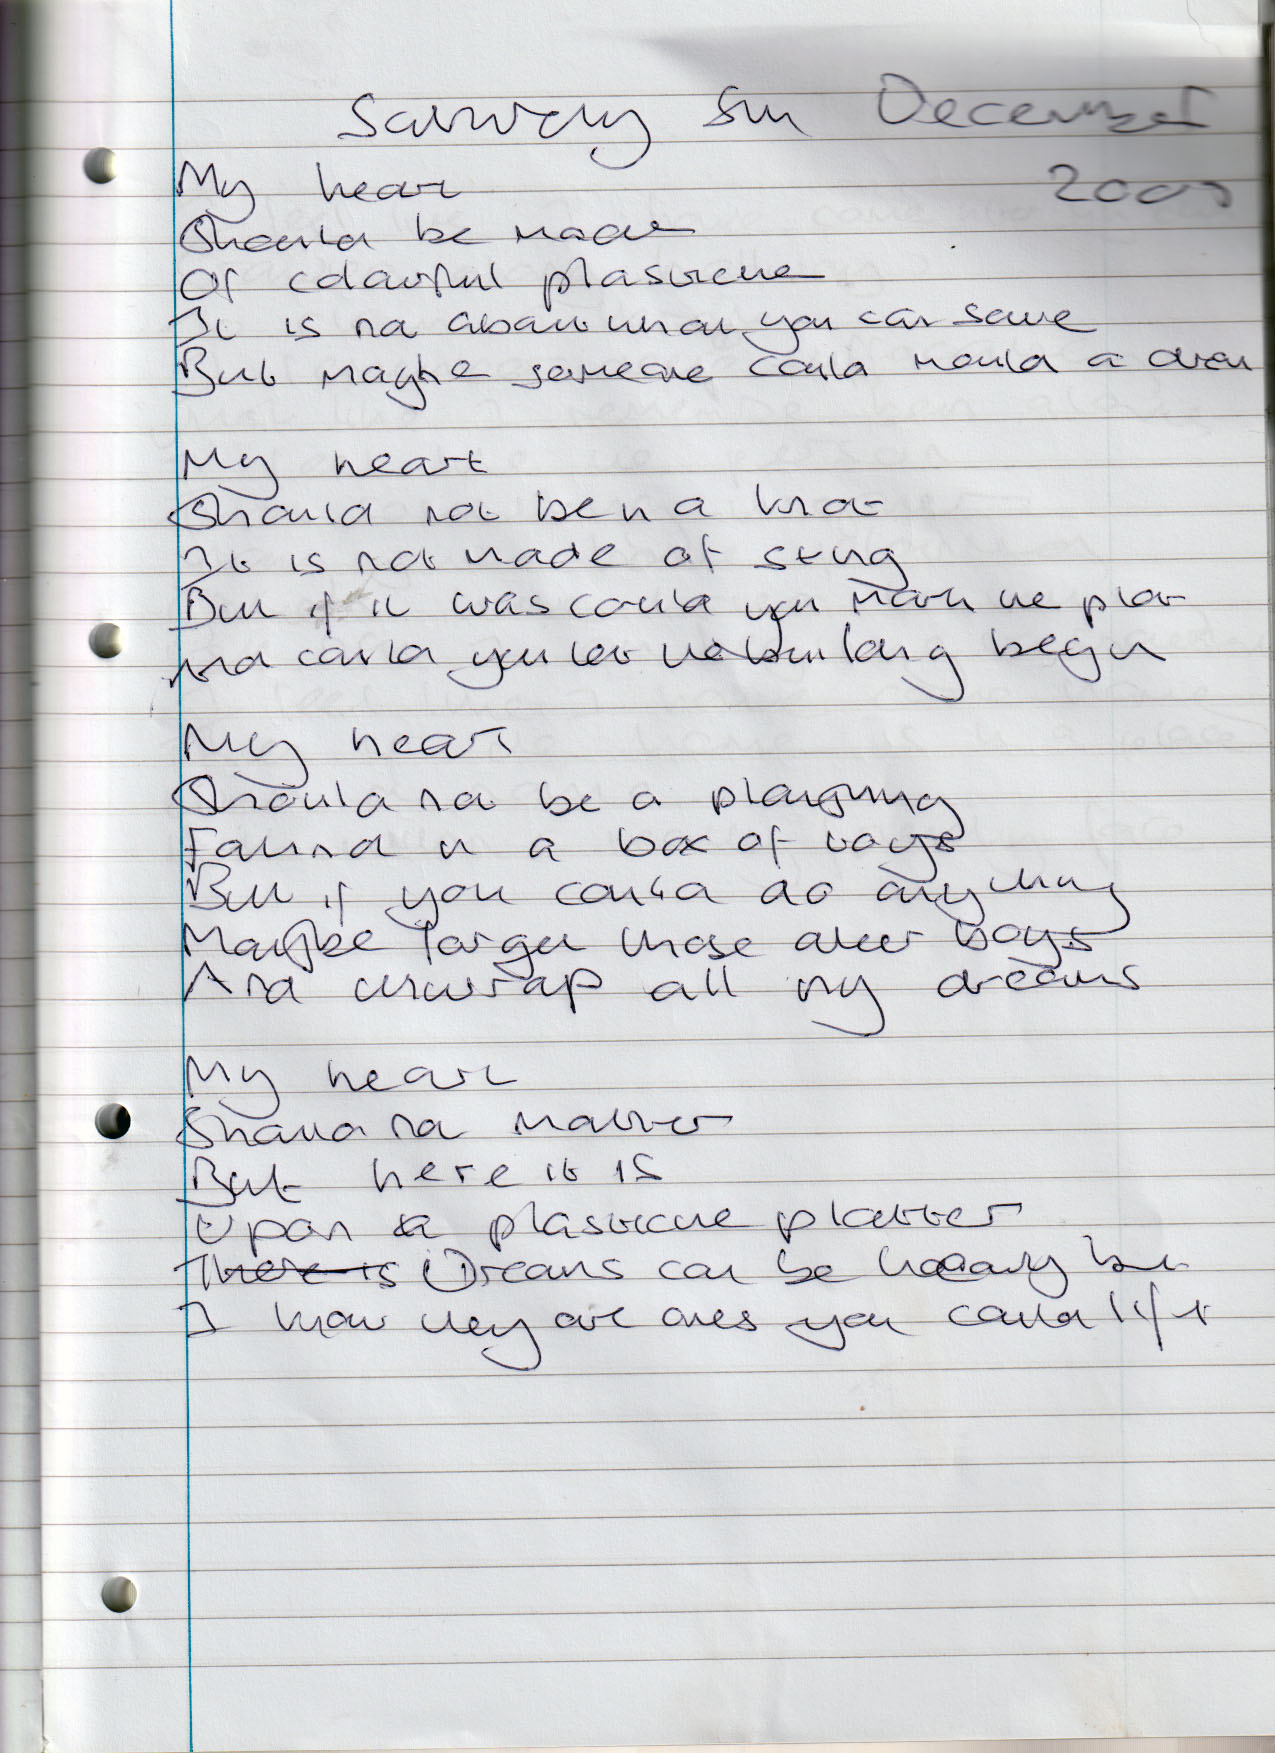 Saturday 5th December
2009
My heart
Should be made
Of colourful plasticine
It is not about what you can save
But maybe someone could mould a dream
My heart
Should not be in a knot
It is not made of string
But if it was could you
And could you let begin
My heart
Should not be a plaything
Found in a box of toys
But if you could do anything
Maybe forget those other boys
And unwrap all my dreams
My heart
Should not matter
But here it is
Upon a plasticine platter
There is Dreams can be heavy but
I know they are ones you could lift